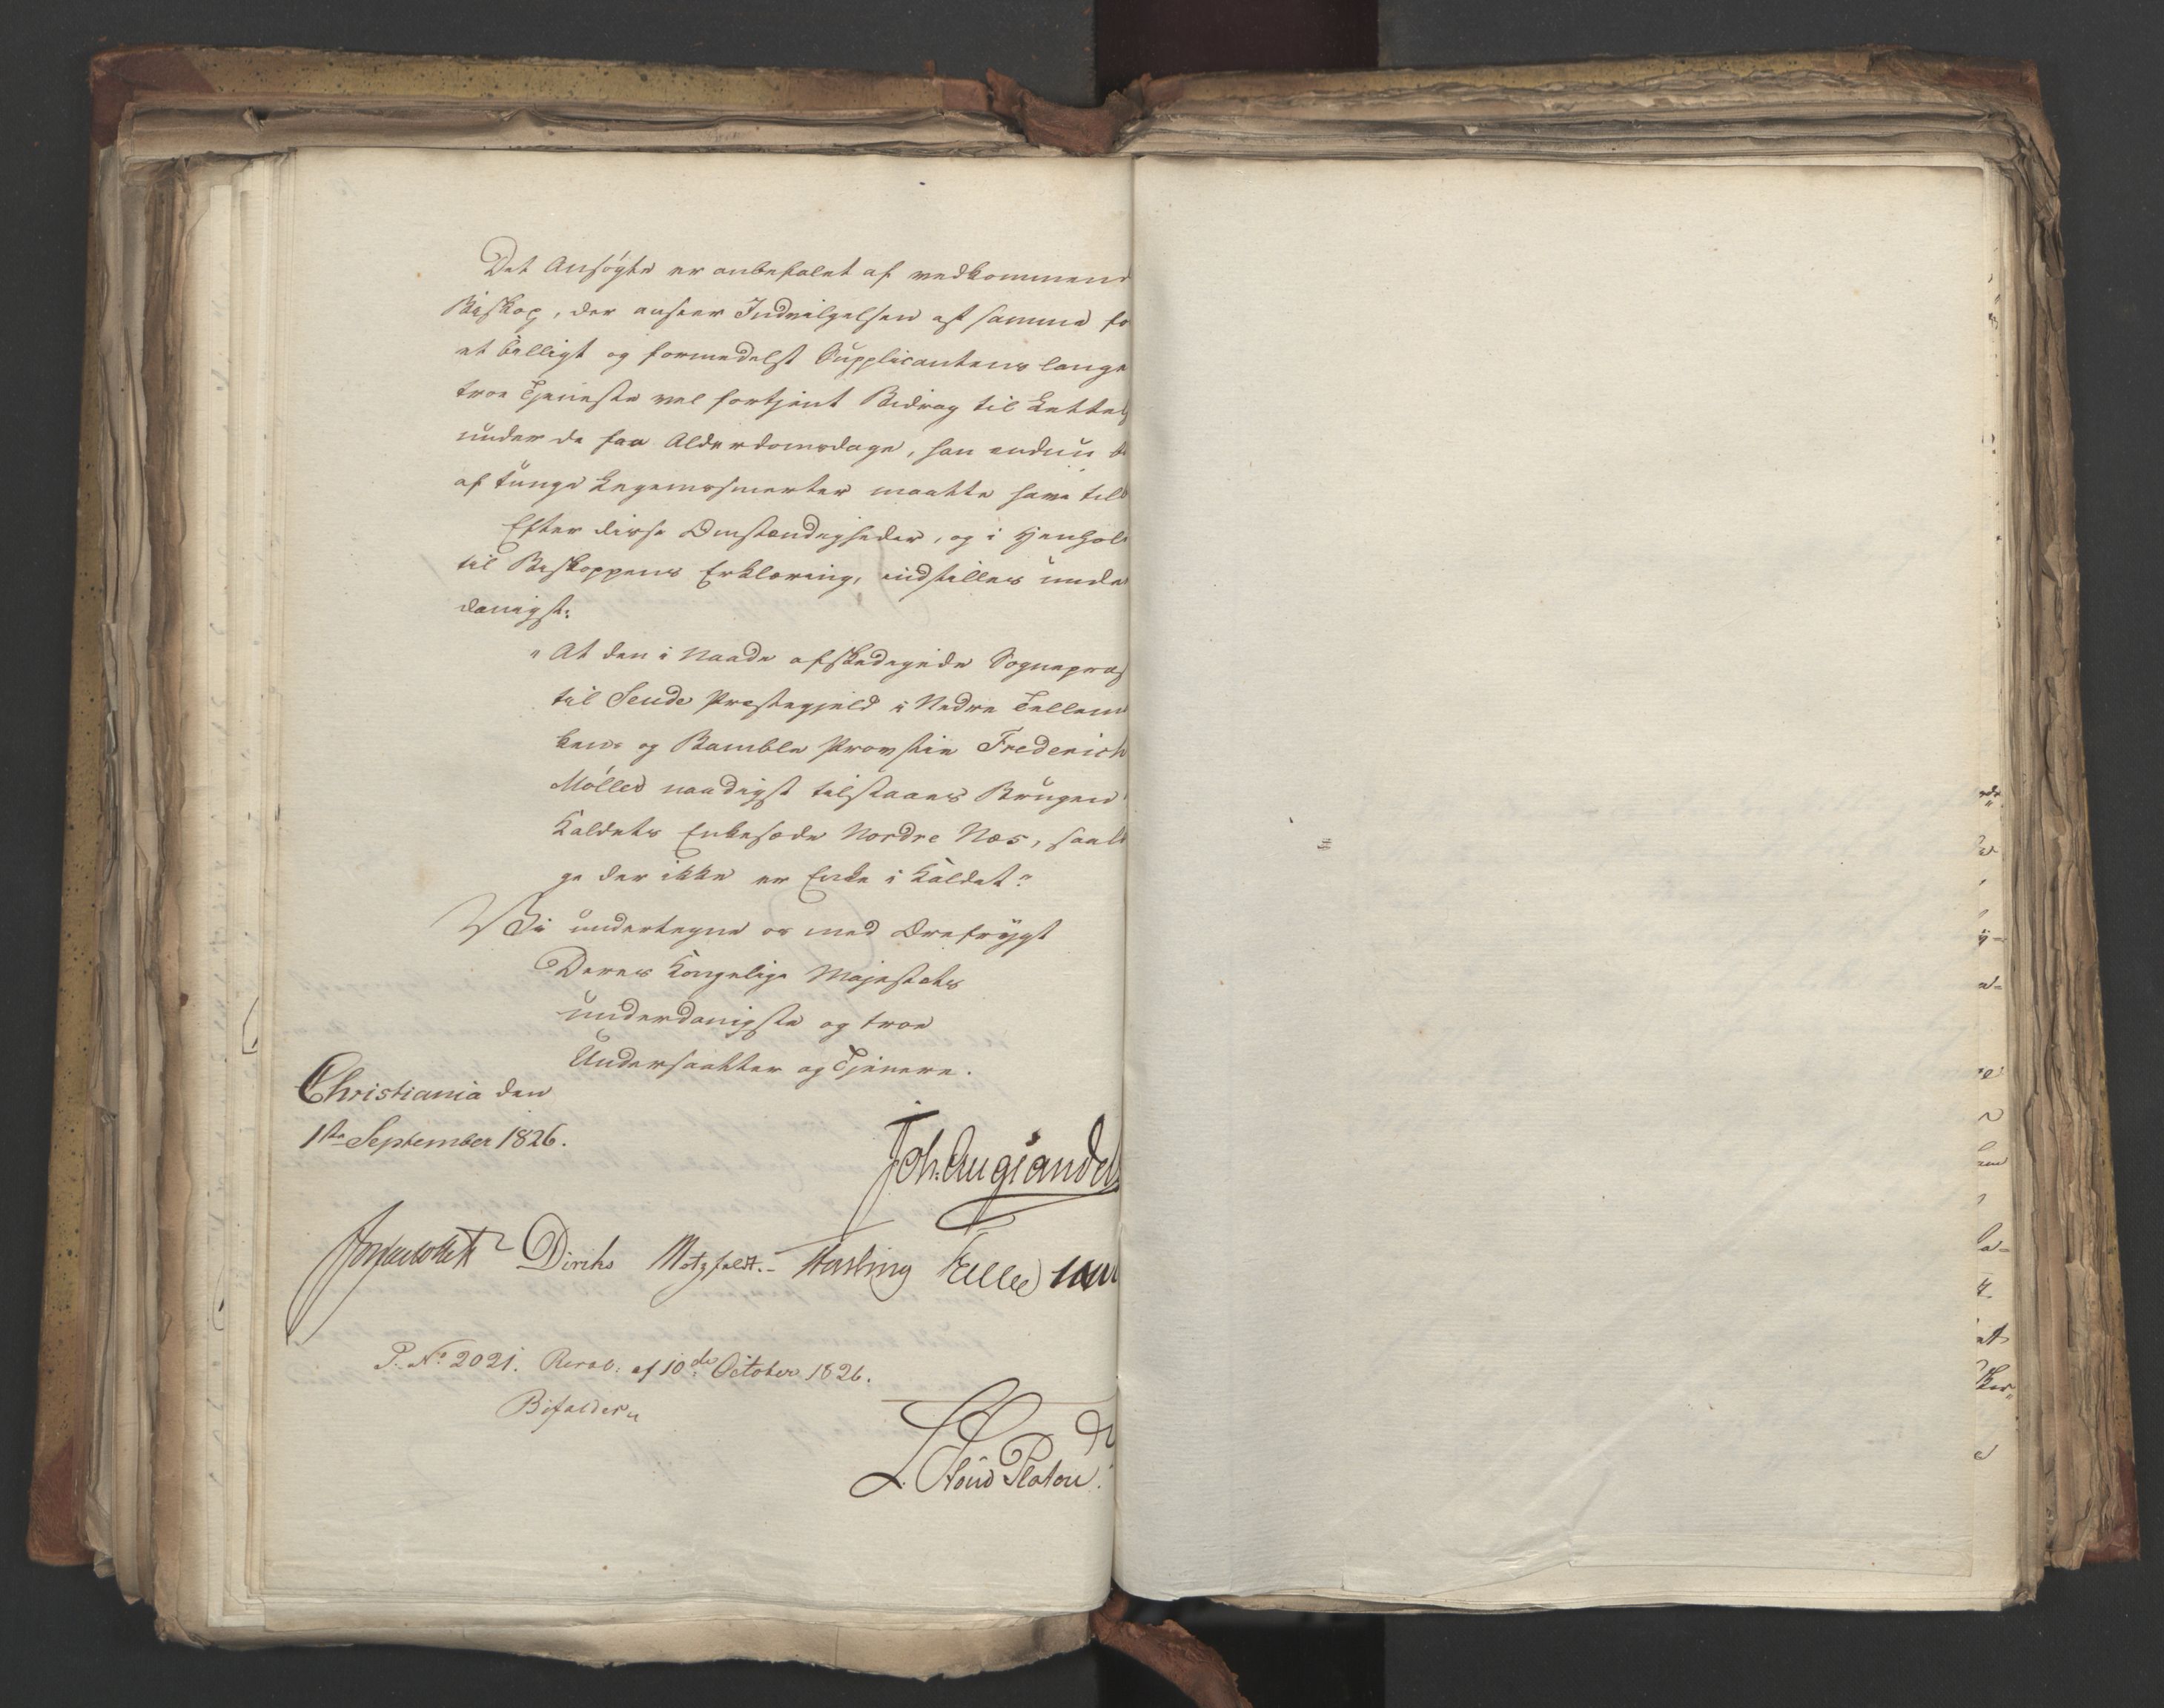 Det Ansøgte er anbefalet af vedkommend
Biskop, der anseer Indvilgelsen af samme fo
et billigt og formedelst Supplicantens lange
troe Tjeneste vel fortjent Bidrag til Lettels
under de faa Alderdomsdage, han endnu
af tunge Legemssmerter maatte have til
Efter disse Omstændigheder, og i Henhol
til Biskoppens Erklæring, indstilles unde
danigst:
"At den i Naade afskedigede Sognepræs
til Seude Præstegjeld i Nedre Tellem
kens og Bamble Provstie Frederich
Møller naadigst tilstaaes Brugen
Kaldets Enkesæde Nordre Næs, saal
ge der ikke er Enke i Kaldet."
Vi undertegne os med Ærefrygt
Deres Kongelige Majestæts
underdanigste og troe
Undersaatter og Tjenere.
Christiania den
1ste September 1826.
Joh. Aug Sandel
J Collett Diriks Motzfeldt. Hasling Falle
P. No 2021. Resol. af 10de October 1826.
Bifaldes
L. Stoud Platou.